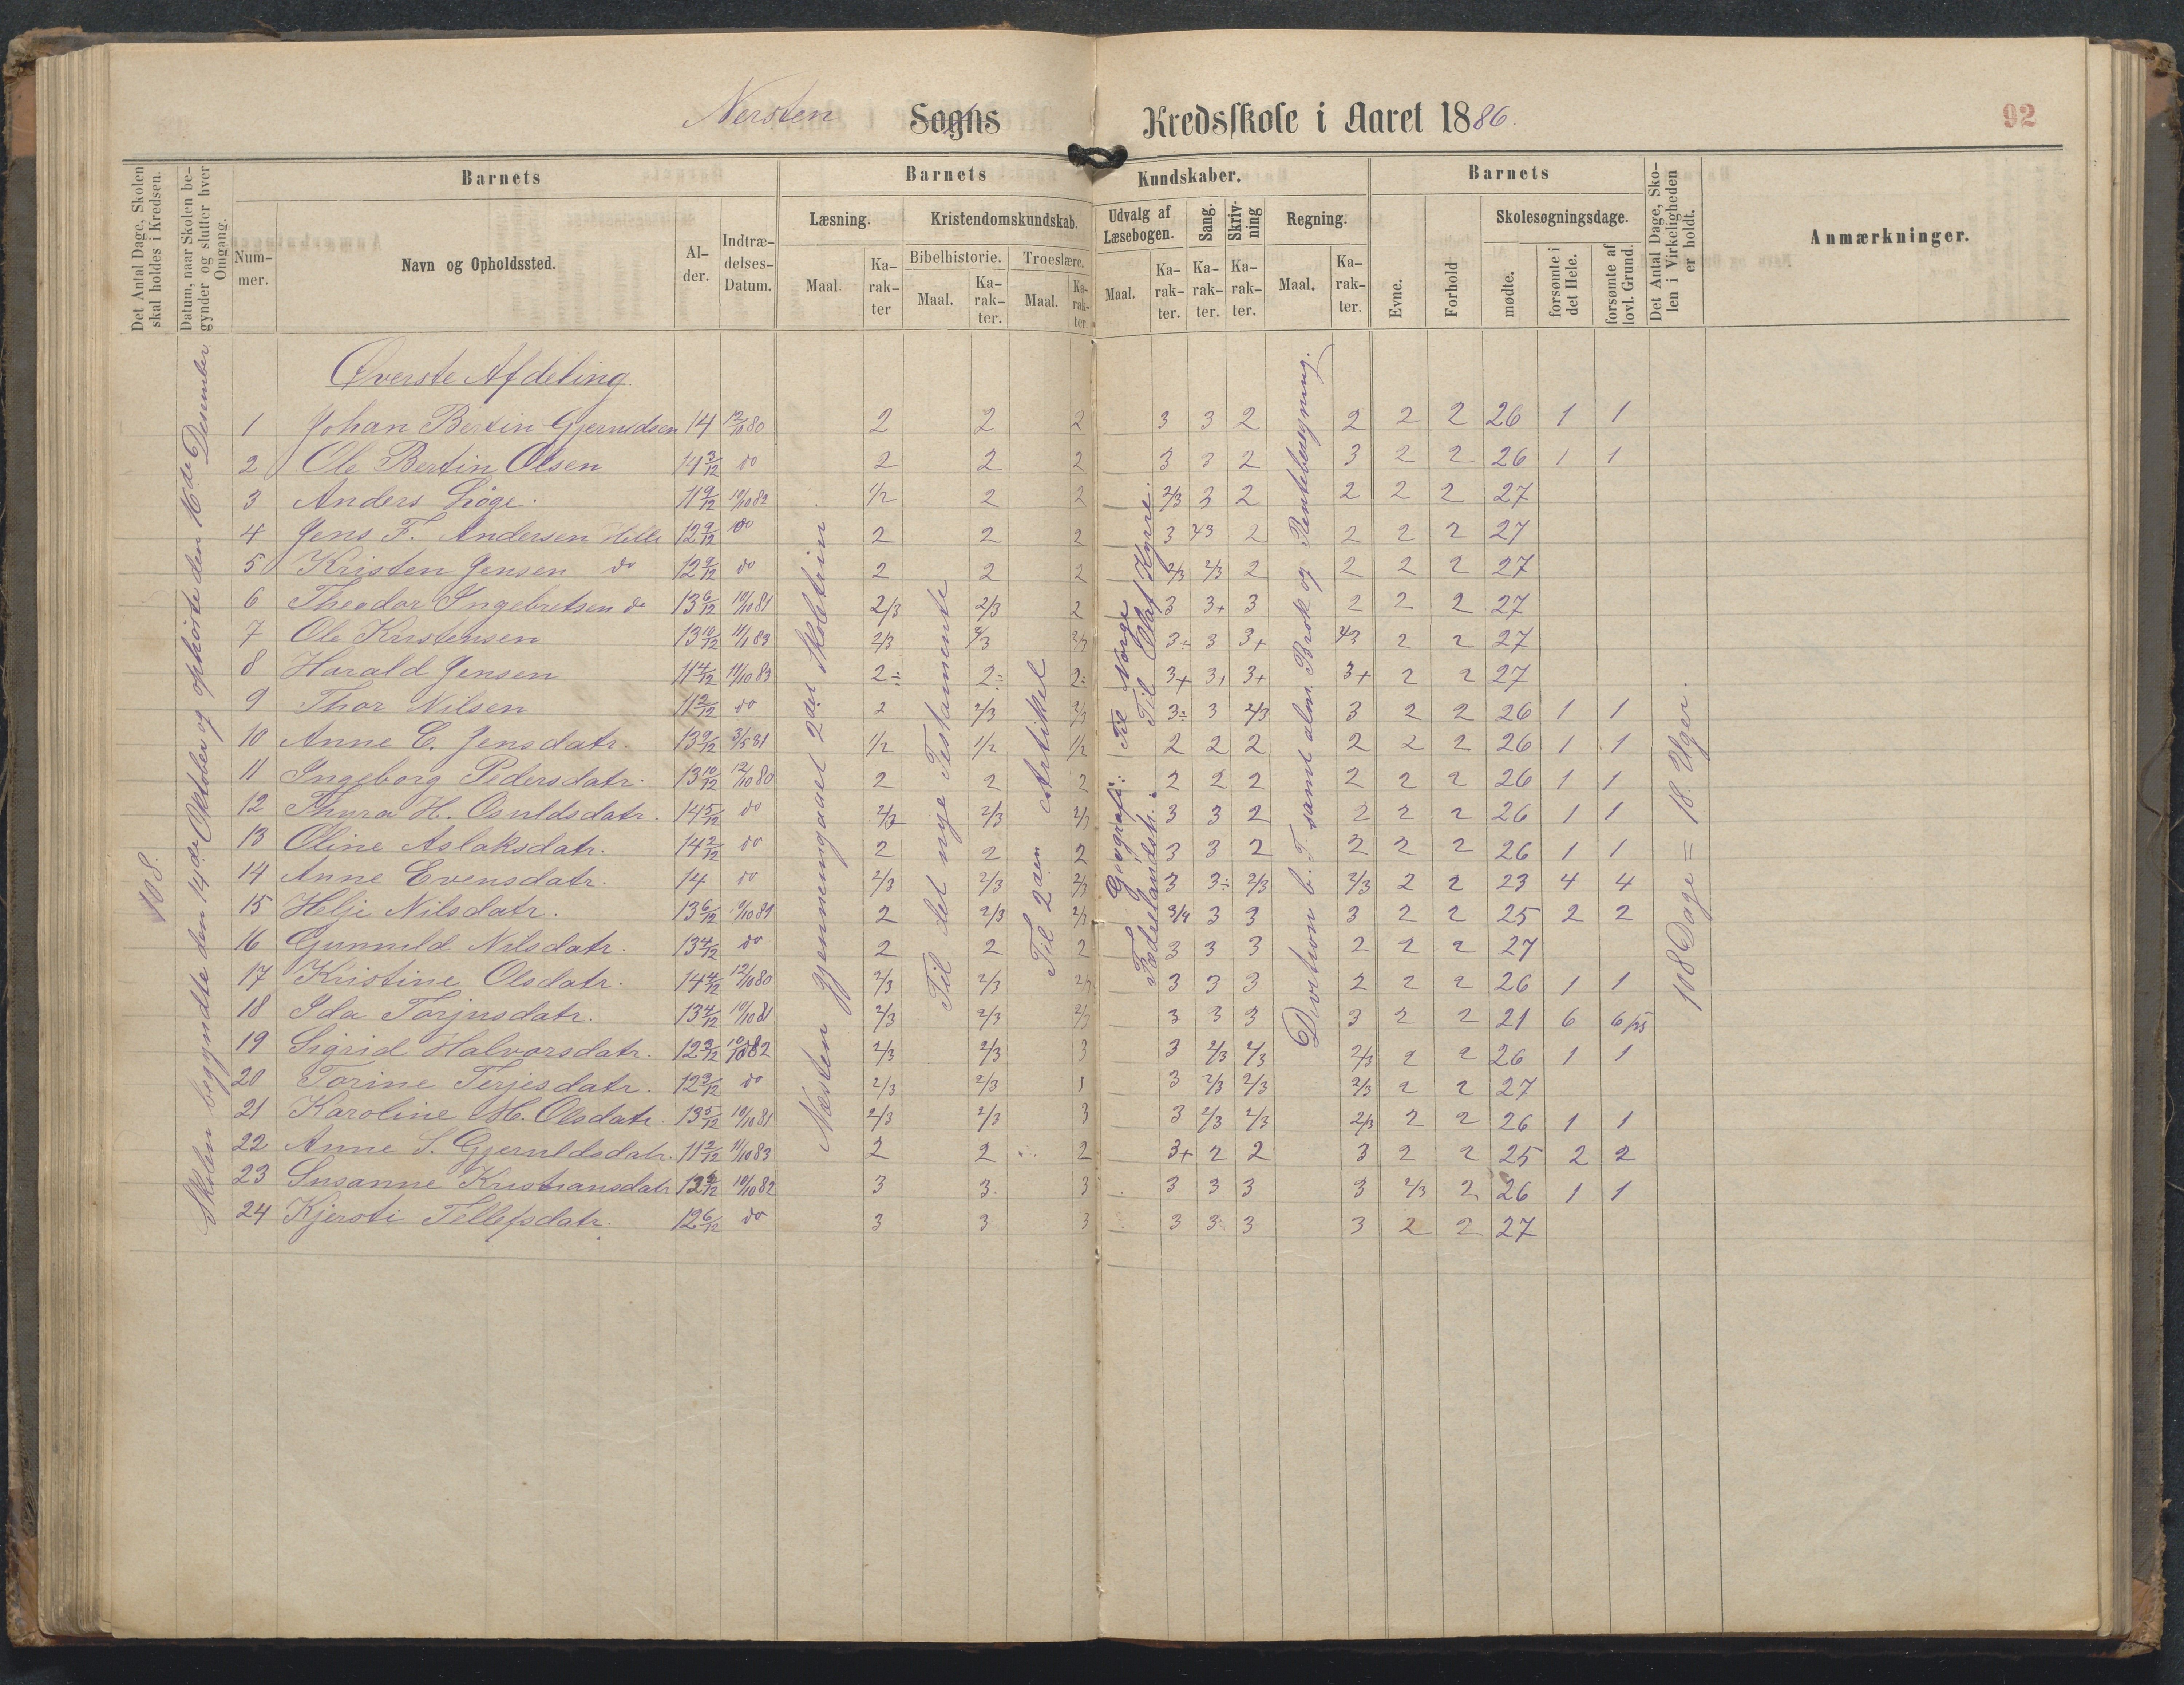 Nersten Sogns Kredsskole i Aaret 1886. 92
Det Antal Dage, Skolen skal holdes i Kredsen.
Datum, naar Skolen begynder og slutter hver Omgang.
Barnets
Nummer.
Navn og Opholdssted.
Alder.
Indtrædelses-Datum.
Barnets Kundskaber.
Læsning.
Maal.
Karakter
Kristendomskundskab.
Bibelhistorie.
Maal.
Karakter.
Troeslære.
Maal.
Karakter.
Udvalg af Læsebogen.
Maal.
Karakter.
Sang.
Karakter.
Skrivning
Karakter.
Regning.
Maal.
Karakter.
Barnets
Evne.
Forhold
Skolesøgningsdage.
mødte.
forsømte i det Hele.
forsømte af lovl. Grund.
Det Antal Dage, Skolen i Virkeligheden er holdt.
Anmærkninger.
108.
Skolen begyndte den 14de Oktober og ophørte den 16de Desember
Næsten gjennemgaaet 2det Skoletrin
Til det nye Testamente
Til 2den Artikkel
Geografi: Til Norge
Fædrelandsh.: Til Olaf Kyrre.
Division b. T. samt alm. Brøk og Renteberegning.
108 Dage = 18 Uger.
Øverste Afdeling
1 Johan Bertin Gjeruldsen 14 12/10 80 2 2 2 3 3 2 2 2 2 26 1 1
2 Ole Bertin Olsen 14 3/12 do 2 2 2 3 3 2 3 2 2 26 1 1
3 Anders Løge. 11 9/12 10/10 82 1/2 2 2 2/3 3 2 2 2 2 27
4 Jens F. Andersen 12 9/12 do 2 2 2 3 2/3 2 2 2 2 27
5 Kristen Jensen do 12 9/12 do 2 2 2 2/3 2/3 2 2 2 2 27
6 Theodor Ingebretsen do 13 6/12 10/10 81 2/3 2/3 2 3 3+ 3 2 2 2 27
7 Ole Kristensen 13 10/12 11/1 83 2/3 2/3 2/3 3÷ 3 3+ 2/3 2 2 27
8 Harald Jensen 11 4/12 11/10 83 2÷ 2÷ 2÷ 3+ 3+ 3+ 3+ 2 2 27
9 Thor Nilsen 11 2/12 do 2 2/3 2/3 3÷ 3 2/3 3 2 2 26 1 1
10 Anne C. Jensdatr. 13 9/12 3/5 81 1/2 1/2 1/2 2 2 2 2 2 2 26 1 1
11 Ingeborg Pedersdatr. 13 10/12 12/10 80 2 2 2 2 2 2 2 2 2 26 1 1
12 Thura H. Osuldsdatr. 14 5/12 do 2/3 2/3 2/3 3 3 2 2 2 2 26 1 1
13 Oline Aslaksdatr. 14 2/12 do 2 2 2 3 3 2 2 2 2 26 1 1
14 Anne Evensdatr. 14 do 2/3 2/3 2/3 3 3÷ 2/3 2/3 2 2 23 4 4
15 Helje Nilsdatr. 13 6/12 9/10 81 2 2/3 2/3 3/4 3 3 3 2 2 25 2 2
16 Gunnuld Nilsdatr. 13 4/12 do 2 2 2 3 3 3 2 2 2 27
17 Kristine Olsdatr. 14 4/12 12/10 80 2/3 2/3 2/3 3 3 3 2 2 2 26 1 1
18 Ida Torjusdatr. 13 4/12 10/10 81 2/3 2/3 2/3 3 3 3 3 2 2 21 6 6
19 Sigrid Halvorsdatr. 12 3/12 10/10 82 2/3 2/3 3 3 2/3 2/3 2/3 2 2 26 1 1
20 Torine Terjesdatr. 12 3/12 do 2/3 2/3 3 2/3 2/3 2/3 2 2 27
21 Karoline M. Olsdatr. 13 5/12 10/10 81 2/3 2/3 3 3 2/3 2/3 2/3 2 2 26 1 1
22 Anne S. Gjeruldsdatr. 11 2/12 11/10 83 2 2 2 3+ 2 2 3 2 2 25 2 2
23 Susanne Kristiansdatr 10/10 82 3 3 3 3 3 3 3 2/3 2 26 1 1
24 Kjersti Tellefsdatr. 12 6/12 do 3 3 3 3 3 3 3 2 2 27